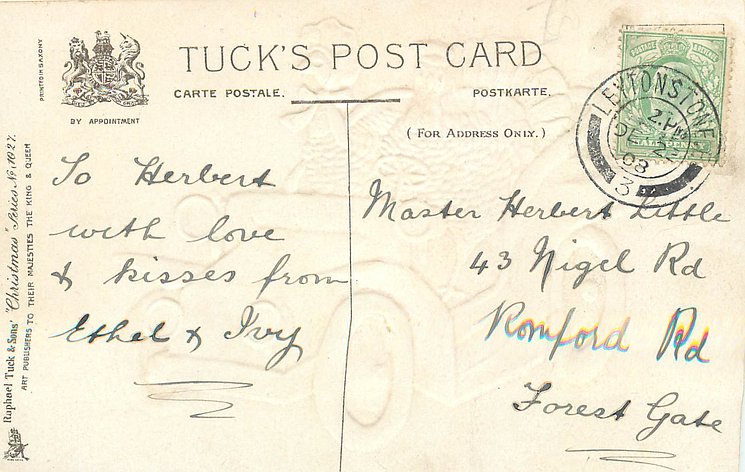 TUCK'S POST CARD
CARTE POSTALE.
POSTKARTE.
BY APPOINTMENT
(FOR ADDRESS ONLY.)
PRINTED IN SAXONY
Raphael Tuck & Sons' "Christmas" Series No. 1027.
ART PUBLISHERS TO THEIR MAJESTIES THE KING & QUEEN
POSTAGE
HALFPENNY
LEYTONSTONE
2.PM
DE 22
08
3
To Herbert
with love
& kisses from
Ethel & Ivy
Master Herbert Little
43 Nigel Rd
Romford Rd
Forest Gate